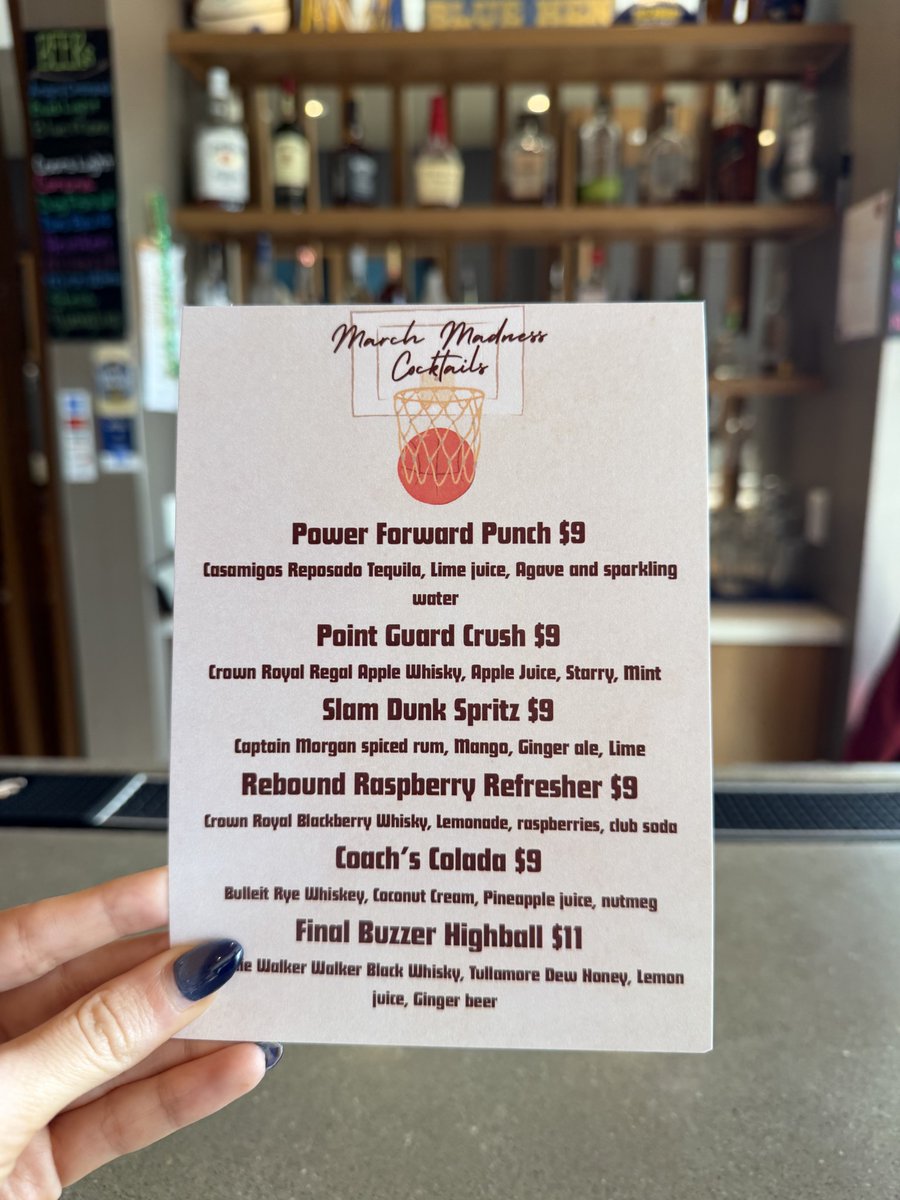 BLUE HEN
March Madness
Cocktails
Power Forward Punch $9
Casamigos Reposado Tequila, Lime juice, Agave and sparkling
water
Point Guard Crush $9
Crown Royal Regal Apple Whisky, Apple Juice, Starry, Mint
Slam Dunk Spritz $9
Captain Morgan spiced rum, Mango, Ginger ale, Lime
Rebound Raspberry Refresher $9
Crown Royal Blackberry Whisky, Lemonade, raspberries, club soda
Coach's Colada $9
Bulleit Rye Whiskey, Coconut Cream, Pineapple juice, nutmeg
Final Buzzer Highball $11
Walker Walker Black Whisky, Tullamore Dew Honey, Lemon
juice, Ginger beer